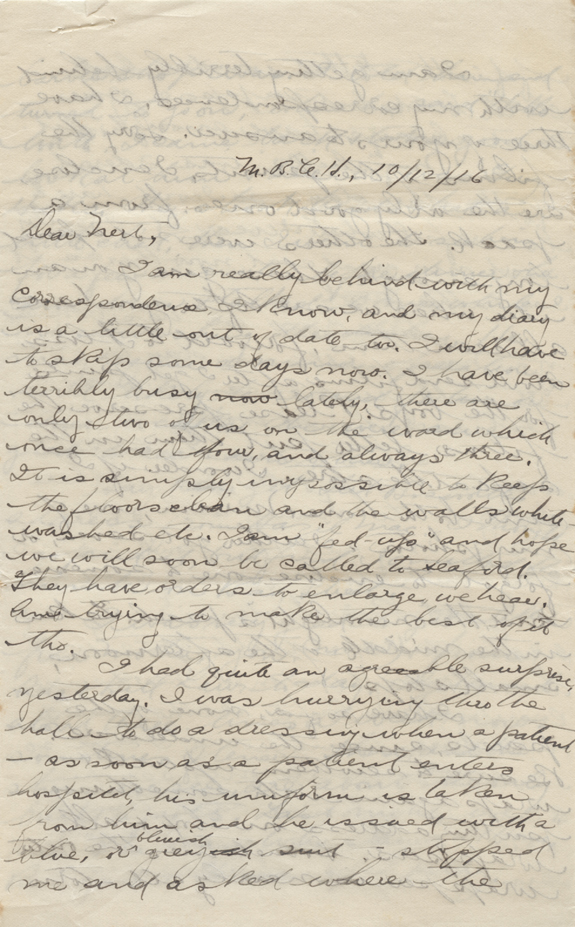 M.B.C.H., 10/12/16
Dear Nert,
I am really behind with my
correspondence I know, and my diary
is a little out of date too. I will have
to skip some days now. I have been
terribly busy now lately, there are
only two of us on the ward which
once had four, and always three.
It is simply impossible to keep
the floors clean and the walls white-
washed etc. I am "fed-up" and hope
we will soon be called to seaford.
They have orders to enlarge we hear.
Am trying to make the best of it
tho.
I had quite an agreeable surprise,
yesterday. I was hurrying thro the
hall to do a dressing when a patient
- as soon as a patient enters
hospital, his uniform is taken
from him and he is issued with a
blue, or bluish greyish suit - stopped
me and asked where the